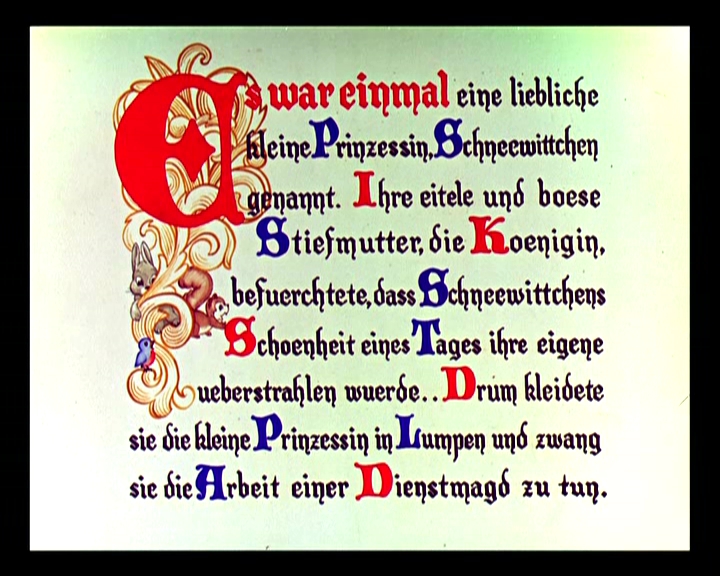 Es war einmal eine liebliche
kleine Prinzessin, Schneewittchen
genannt. Ihre eitele und boese
Stiefmutter, die Koenigin,
befuerchtete, dass Schneewittchens
Schoenheit eines Tages ihre eigene
ueberstrahlen wuerde.. Drum kleidete
sie die kleine Prinzessin in Lumpen und zwang
sie die Arbeit einer Dienstmagd zu tun.